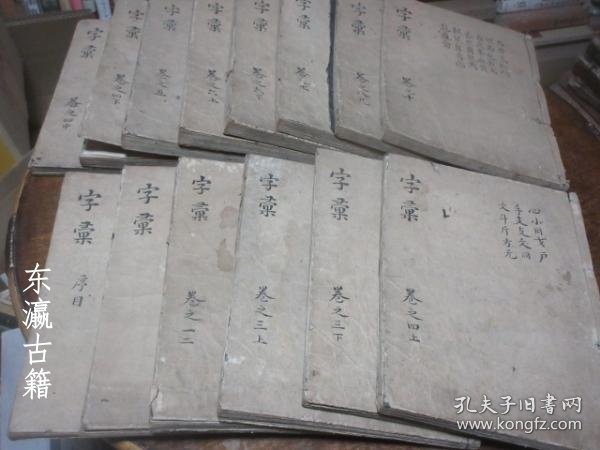 字彙
卷之四中
字彙
卷之四下
字彙
卷之五
字彙
卷之六上
字彙
卷之六下
字彙
卷之七
字彙
卷之八九
字彙
卷十
字彙
序目
字彙
字彙
卷之一二
字彙
卷之三上
字彙
卷之三下
字彙
卷之四上
东瀛古籍
孔夫子旧书网
www.kongfz.com